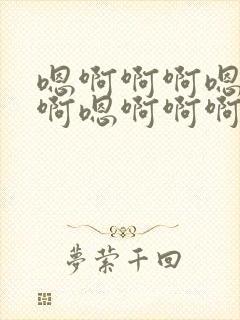 嗯啊啊啊嗯
啊嗯啊啊啊
梦萦千回